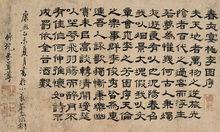 春夜宴桃李園序
夫天地者萬物之逆旅光
陰者百代之過客而浮生
若夢為懽幾何古人秉燭
夜遊良有以也況陽春召
我以煙景大塊假我以文
章會桃李之芳園序天倫
之樂事群季俊秀皆為惠
連吾人詠歌獨慚康樂幽
賞未已高談轉清開瓊筵
以坐花飛羽觴而醉月不
有佳作何伸雅懷如詩不
成罰依
康熙乙未夏月